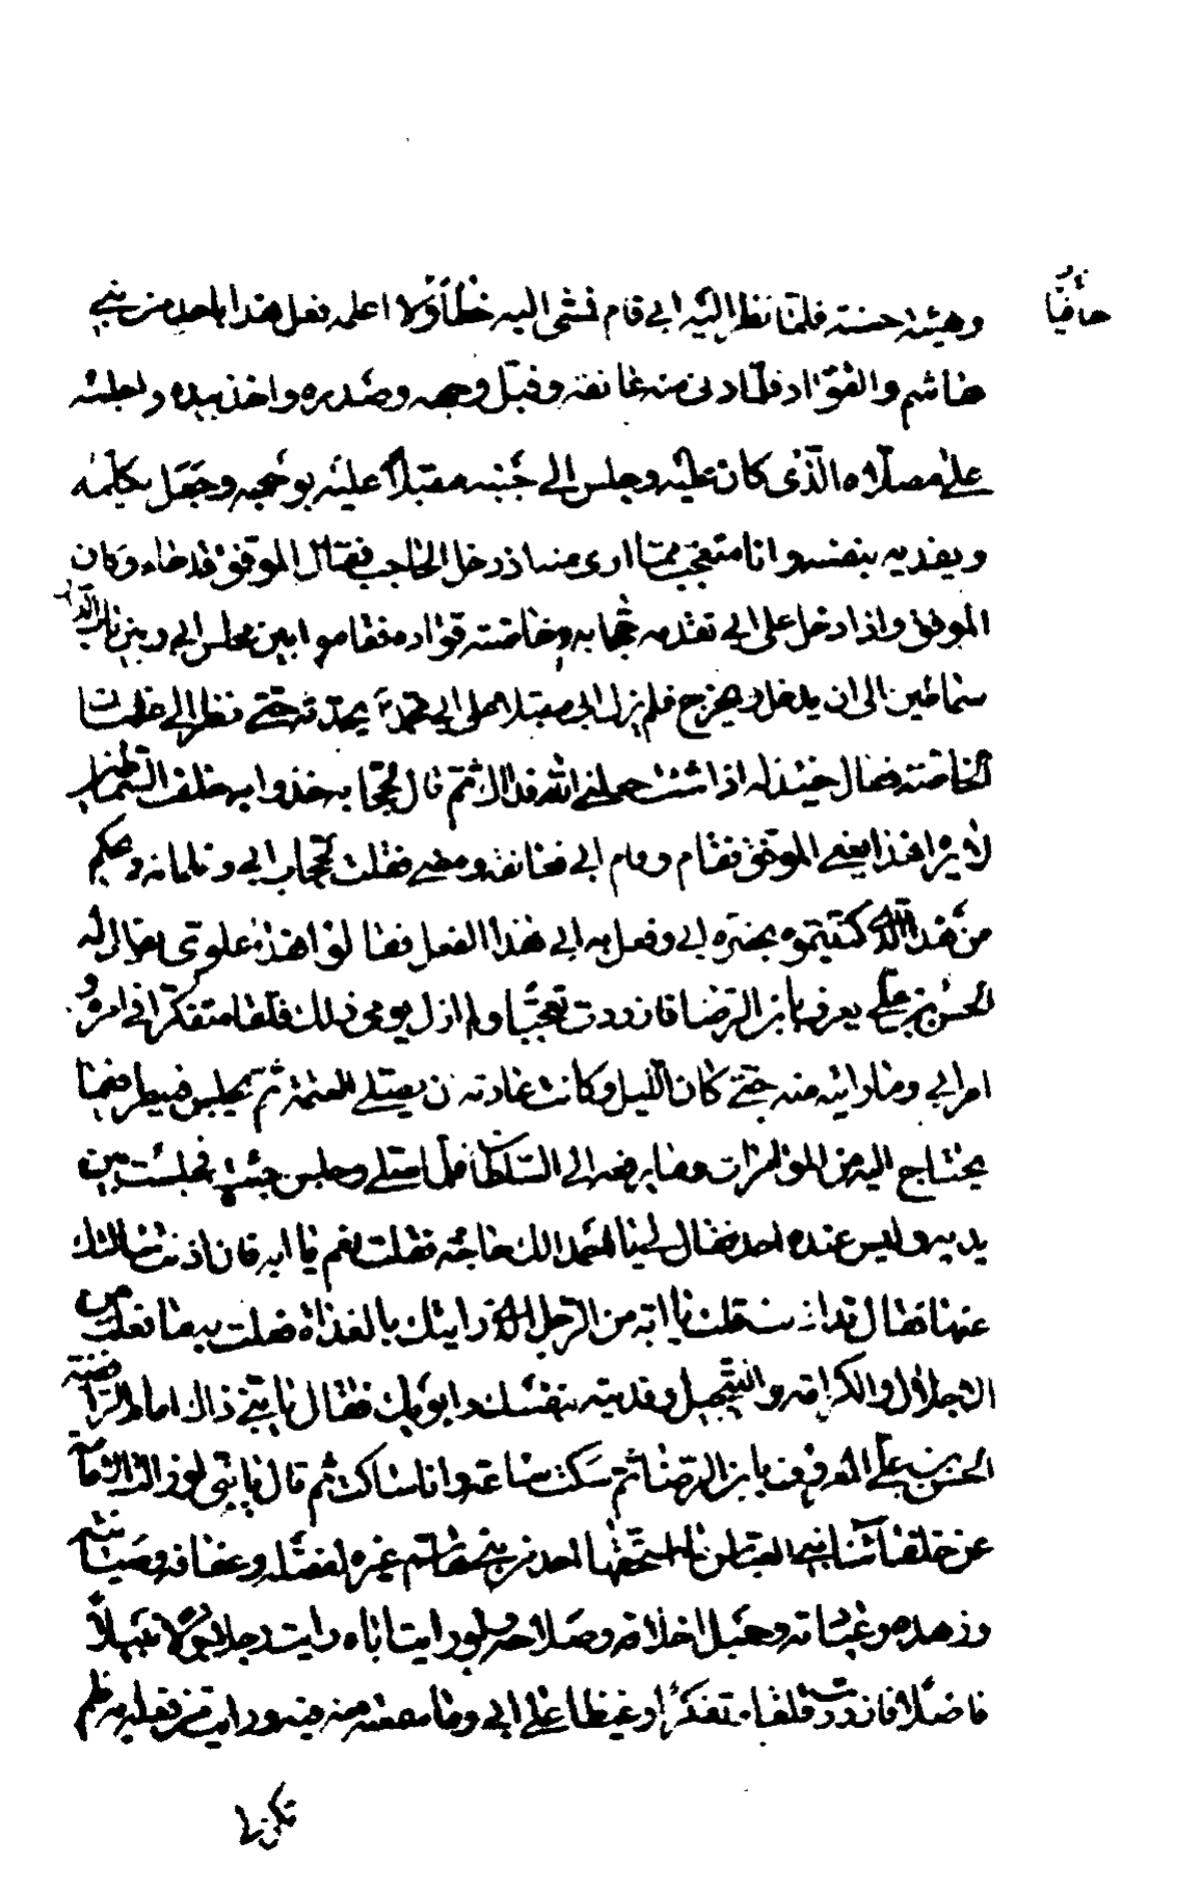 حافيا
وهيئة حسنة فلمّا نظر اليه ابي قام فمشى اليه خطاً ولا اعلمه فعل هذا باحد من بني
هاشم والقوّاد فلمّا دنى منه عانقه وقبّل وجهه وصدره واخذ بيده واجلسه
على مصلّاه الّذى كان عليه وجلس الى جنبه مقبلاً عليه بوجهه وجعل يكلّمه
ويفديه بنفسه وانا متعجّب ممّا ارى منه اذ دخل الحاجب فقال الموفق قد جاء وكان
الموفق اذا دخل على ابي تقدمه حجّابه وخاصّته قوّاده فقاموا بين مجلس ابي وبين باب الدار
سماطين الى ان يدخل ويخرج فلم يزل ابي مقبلا على ابي محمّد يحدّثه حتّى نظر الى غلمان
الخاصّة فقال حينئذ له اذا شئت جعلني الله فداك ثمّ قال لحجّابه خذوا به خلف السّماطين
لا يراه هذا يعني الموفق فقام وقام ابي فعانقه ومضى فقلت لحجّاب ابي وغلمانه ويحكم
من هذا الّذى كنّيتموه بحضرة ابي وفعل به ابي هذا الفعل فقالوا هذا علوىّ يقال له
الحسن بن علىّ يعرف بابن الرّضا فازددت تعجّبا ولم ازل يومى ذلك قلقا متفكّرا في امره و
امر ابي وما رايته منه حتّى كان اللّيل وكانت عادته ان يصلّى العتمة ثمّ يجلس فينظر فيما
يحتاج اليه من المؤامرات وما يرفعه الى السّلطان فلمّا صلّى وجلس جئت فجلست بين
يديه وليس عنده احد فقال لي يا احمد الك حاجة فقلت نعم يا ابه فان اذنت سالتك
عنها فقال قد اذنت قلت يا ابه من الرّجل الّذى رايتك بالغداة فعلت به ما فعلت من
الاجلال والكرامة والتّبجيل وفديته بنفسك وابويك فقال يا بنىّ ذاك امام الرّافضة
الحسن بن علىّ المعروف بابن الرّضا ثمّ سكت ساعة وانا ساكت ثمّ قال يا بنىّ لو زالت الامامة
عن خلفائنا بني العبّاس ما استحقّها احد من بني هاشم غيره لفضله وعفافه وصيانته
وزهده وعبادته وجميل اخلاقه وصلاحه ولو رايت اباه رايت رجلا جزلا نبيلاً
فاضلا فازددت قلقا وتفكّرا وغيظا على ابي وما سمعته منه فيه ورايت من فعله به فلم
تكن لي